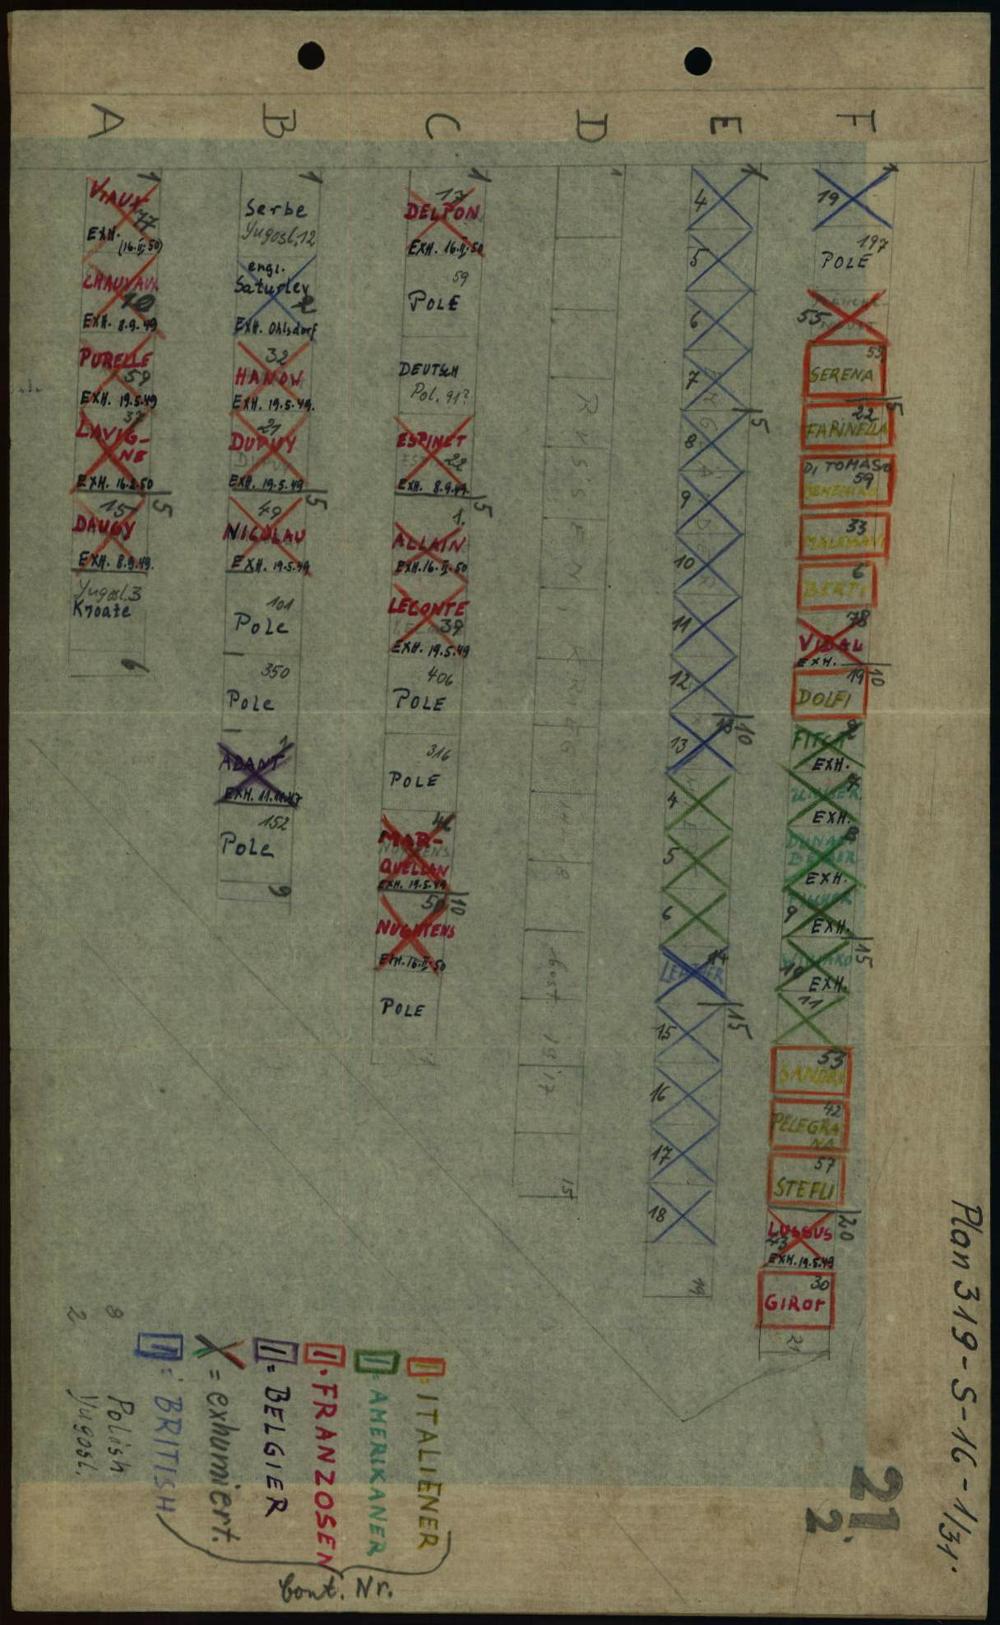 A
1
VIAUX
17
EXH.
(16.II.50)
CHAUVAUX
10
EXH. 8.9.49
PURELLE
59
EXH. 19.5.49
37
LAVIG-
NE
EXH. 16.2.50
5
15
DAUGY
EXH. 8.9.49.
Yugosl.3
Kroate
6
B
1
Serbe
Yugosl.12
engl.
Saturley
2
EXH. Ohlsdorf
32
HANOW
EXH. 19.5.49.
21
DUPUY
EXH. 19.5.49
5
49
NICOLAU
EXH. 19.5.49
101
Pole
350
Pole
1
ADANT
EXH. 11.11.47
152
Pole
9
C
1
17
DELPON
EXH. 16.II.50
59
POLE
DEUTSCH
Pol. 91?
ESPINET
22
EXH. 8.9.49
5
1.
ALLAIN
EXH. 16.II.50
LECONTE
39
EXH. 19.5.49
406
POLE
316
POLE
46
MAR-
QUELLAN
EXH. 19.5.49
10
50
NUGHTENS
EXH. 16.II.50
POLE
D
1
RUSSEN
KRIEG
15
E
1
4
5
6
7
5
8
9
10
11
12
10
13
4
5
6
14
15
15
16
17
18
19
F
1
19
197
POLE
55
53
SERENA
5
22
FARINELLA
DI TOMASO
59
DOMENICO
33
6
BERTI
78
VIDAL
EXH.
10
19
DOLFI
EXH.
7
EXH.
8
EXH.
9
EXH.
15
10
EXH.
11
53
SANDRI
42
PELEGRA
NA
57
STEFLI
20
LUSSUS
73
EXH. 19.5.49
30
GIROT
21
Plan 319-S-16-1/31.
21.
2
I = ITALIENER
I = AMERIKANER
I = FRANZOSEN
I = BELGIER
X = exhumiert.
= BRITISH
8 Polish
2 Yugosl.
Cont. Nr.